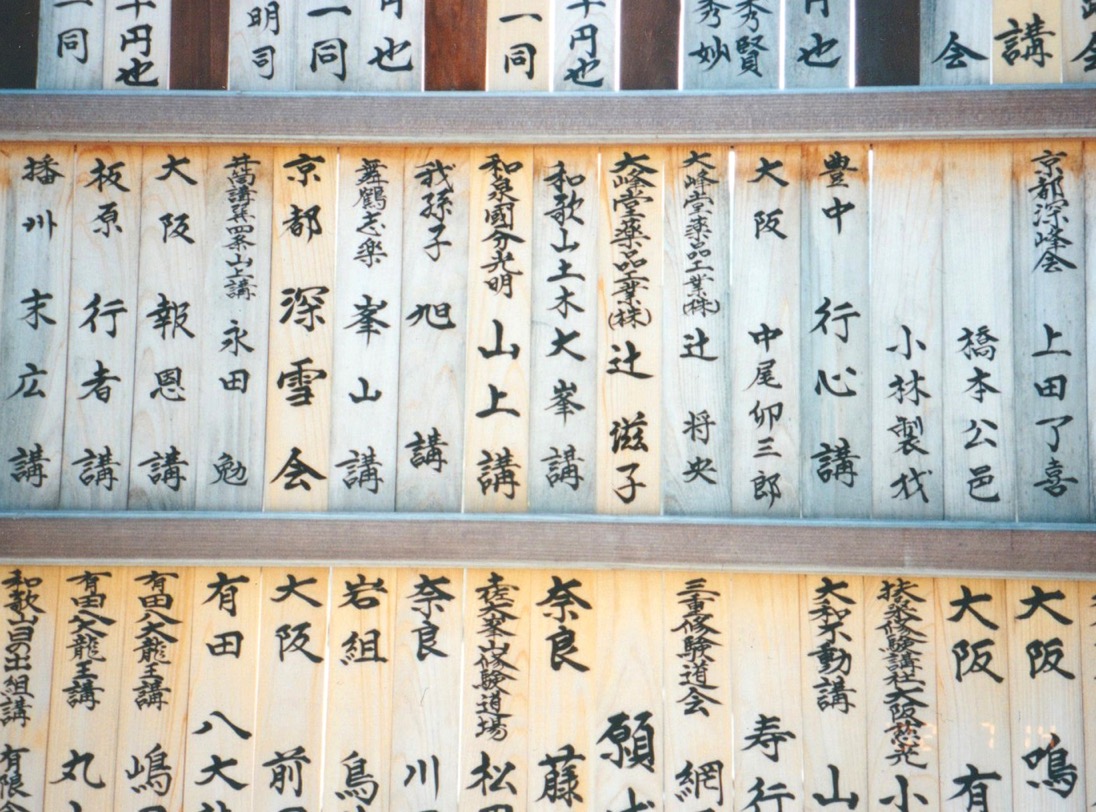 講
会
円也
秀賢
秀妙
円也
一同
円也
一同
明司
千円也
一同
京都深峰会 上田了喜
橋本公邑
小林製伐
豊中 行心講
大阪 中尾卯三郎
大峰堂薬品工業(株) 辻 将央
大峰堂薬品工業(株) 辻 滋子
和歌山土木大峯講
和泉國分光明 山上講
我孫子 旭講
舞鶴志楽 峯山講
京都 深雪会
山上講 永田 勉
大阪 報恩講
板原 行者講
播州 末広講
大阪 鳴
大阪 有
扶桑修験講社大阪慈光 小
大和不動講 山
寿行
三重修験道会 網
願
奈良 藤
大峯山修験道場 松
奈良 川
岩組 鳥
大阪 前
有田 八大
有田八大龍王講 嶋
有田八大龍王講 丸
和歌山日の出組講 有限会